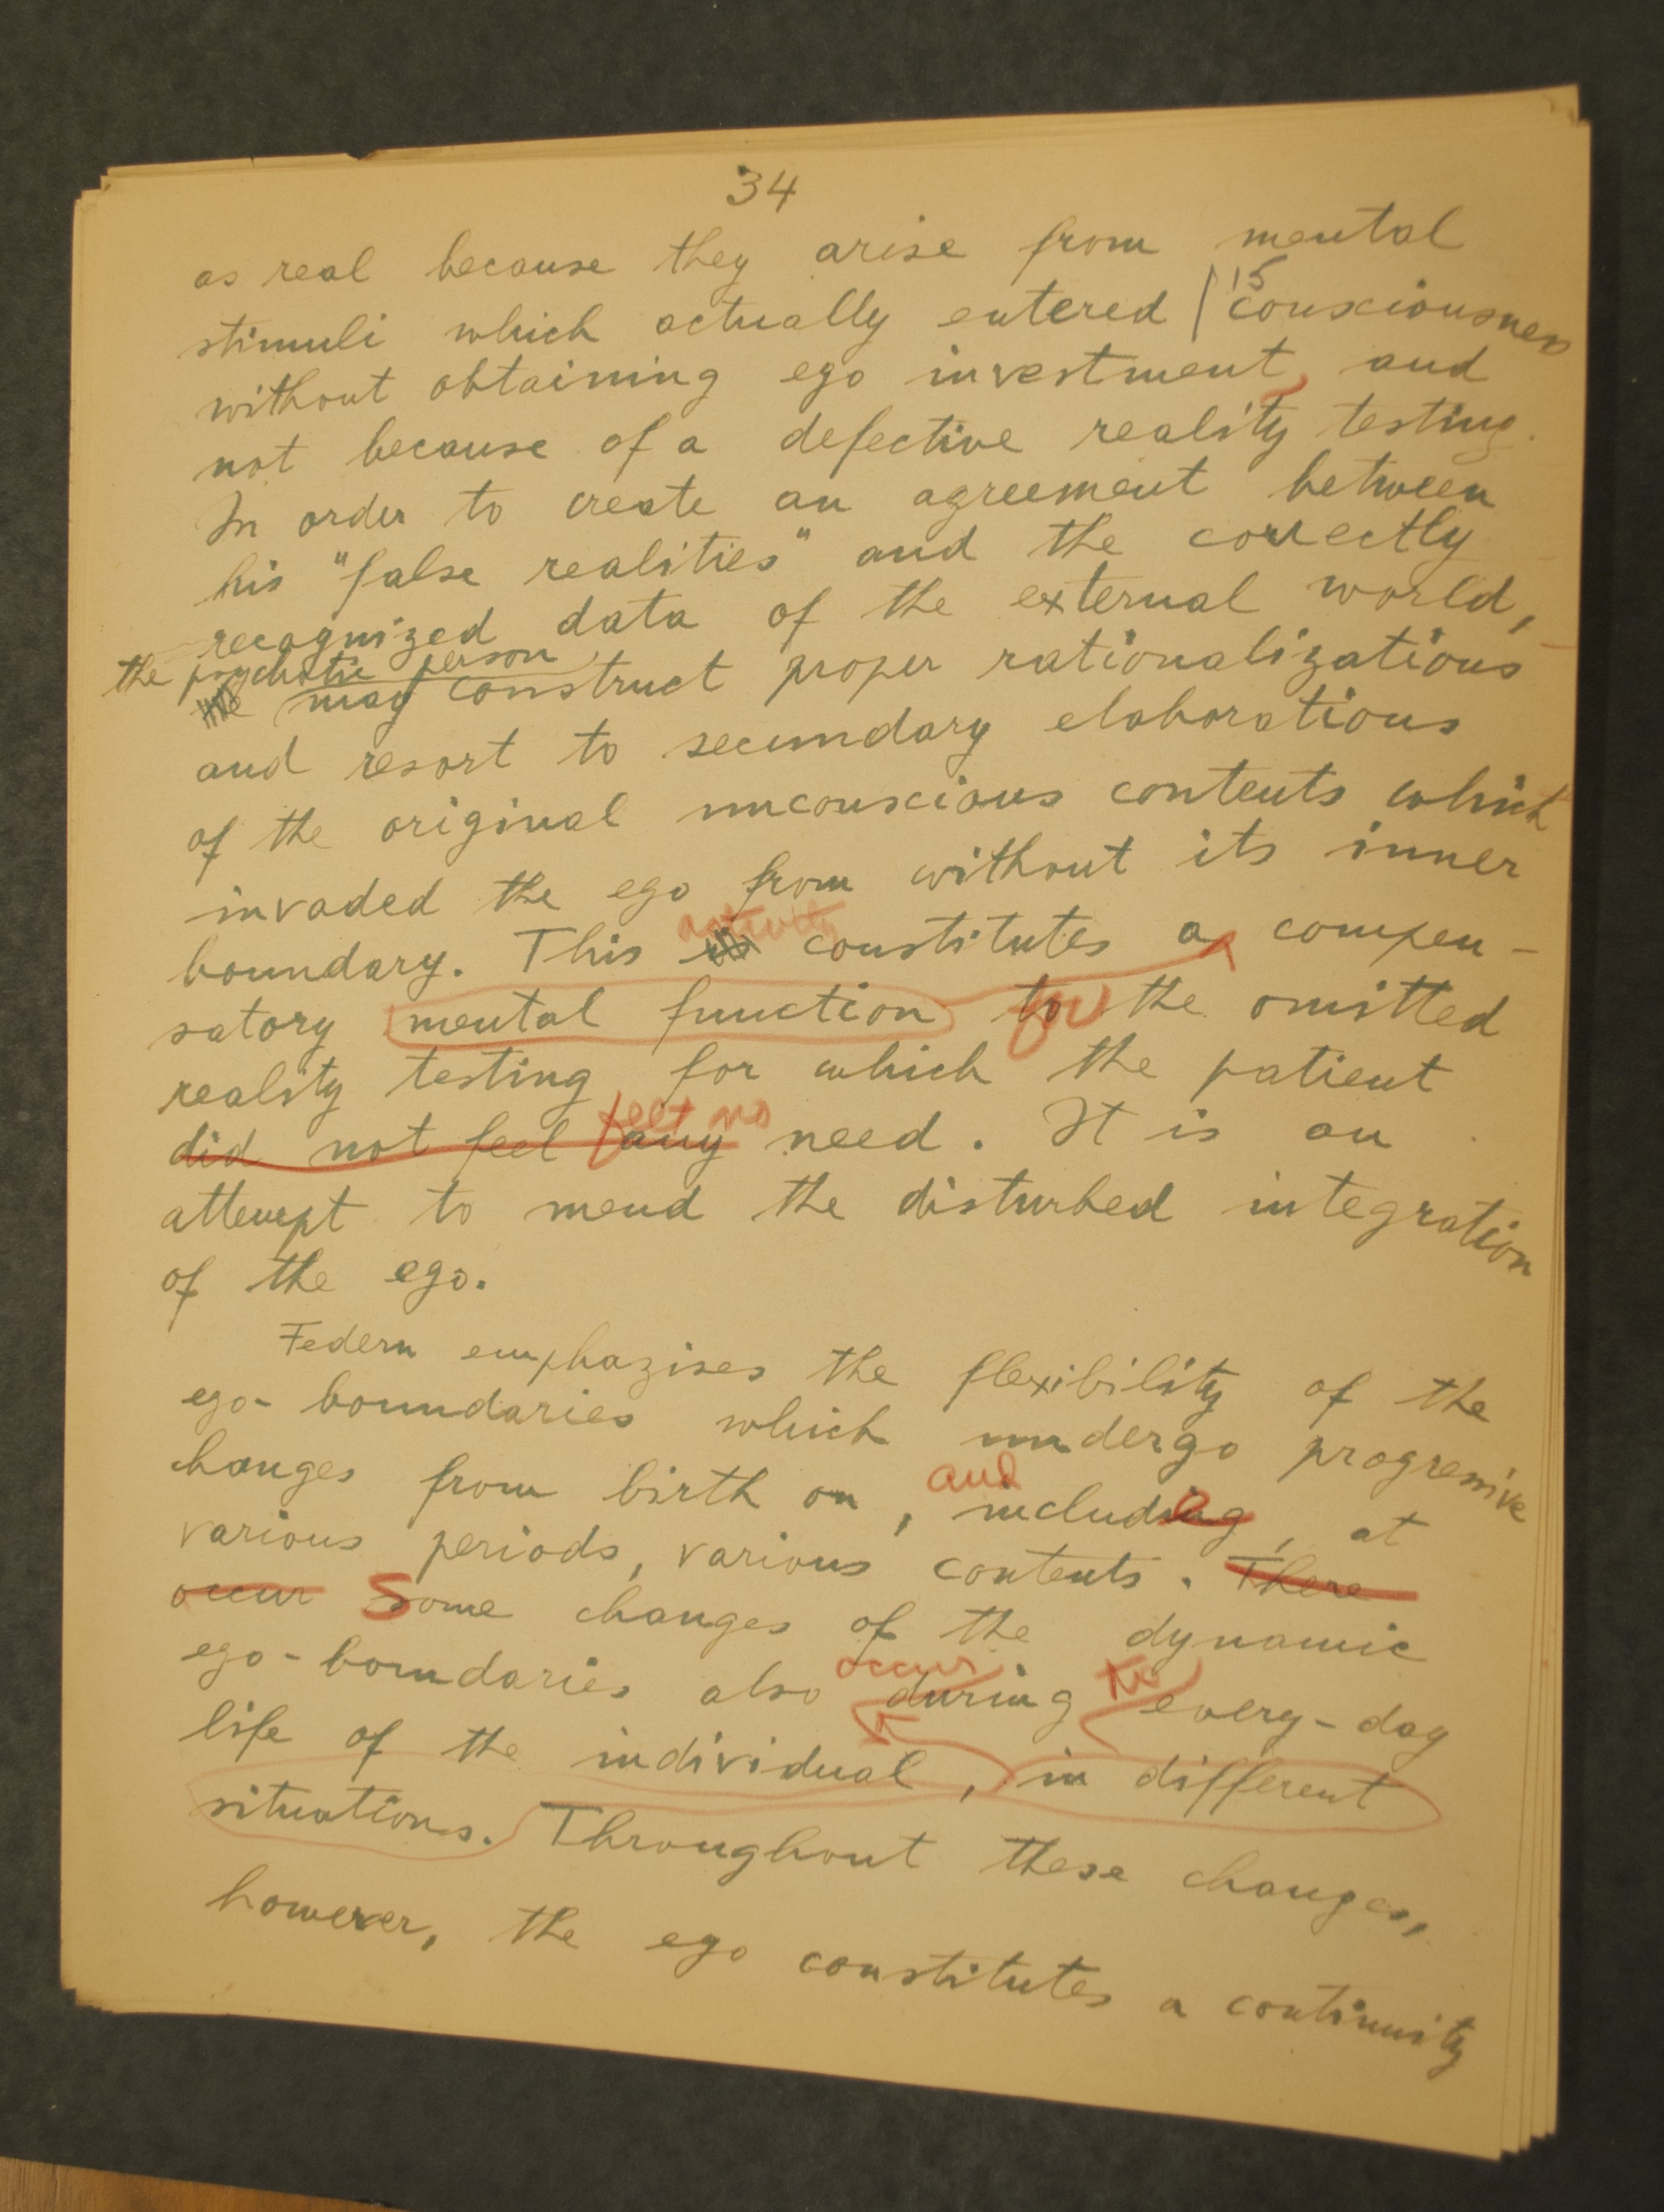 34
as real because they arise from mental
15
stimuli which actually entered | consciousness
without obtaining ego investment, and
not because of a defective reality testing.
In order to create an agreement between
his "false realities" and the correctly
recognized data of the external world,
the psychotic person
may construct proper rationalizations
and resort to secundary elaborations
of the original unconscious contents which
invaded the ego from without its inner
activity
boundary. This constitutes a compen-
satory mental function to for the omitted
reality testing for which the patient
felt no
did not feel any need. It is an
attempt to mend the disturbed integration
of the ego.
Federn emphazises the flexibility of the
ego-boundaries which undergo progressive
changes from birth on, and including, at
various periods, various contents. There
occur Some changes of the dynamic
occur
ego-boundaries also during every-day
life of the individual, in different
situations. Throughout these changes,
however, the ego constitutes a continuity